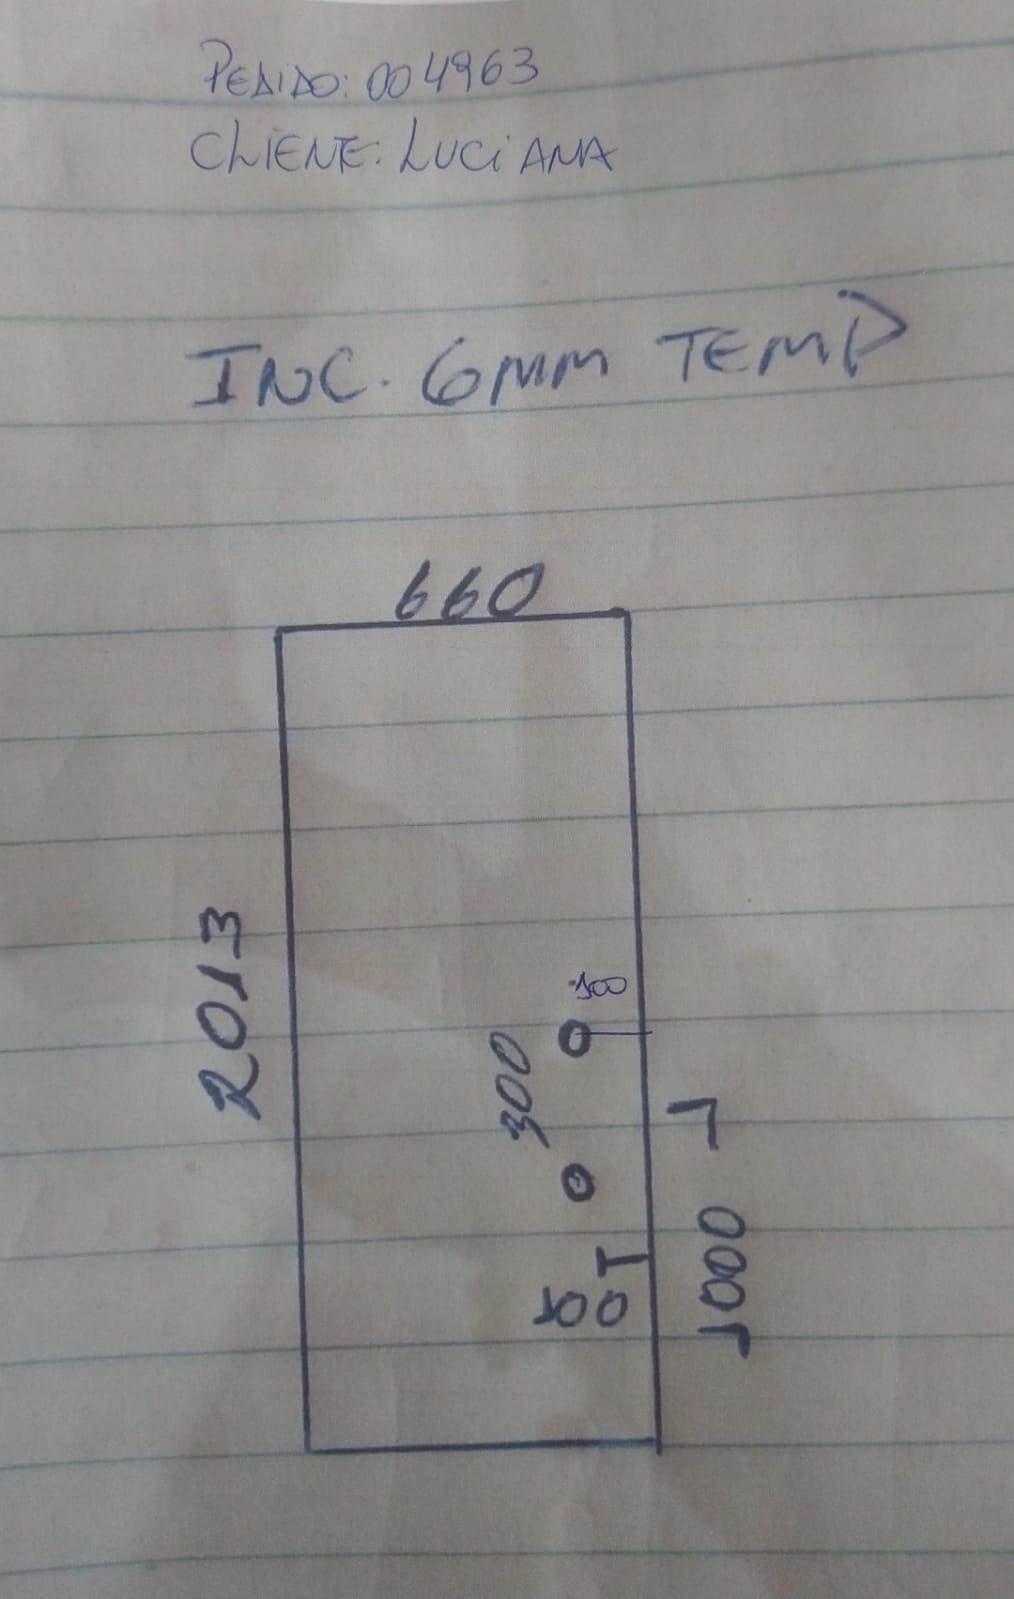 PEDIDO: 004963
CLIENTE: LUCIANA
INC. 6MM TEMP
660
2013
100
300
1000